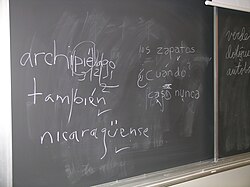 archipiélago
también
nicaragüense
los zapatos
¿Cuándo?
casi nunca
verde